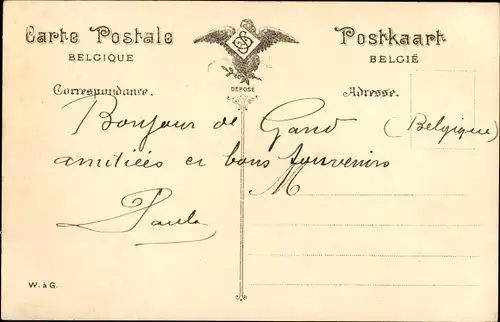 Carte Postale
BELGIQUE
Postkaart
BELGIË
DÉPOSÉ
Correspondance.
Adresse.
Bonjour de Gand (Belgique)
amitiées et bons souvenirs
Paula
M
W. à G.